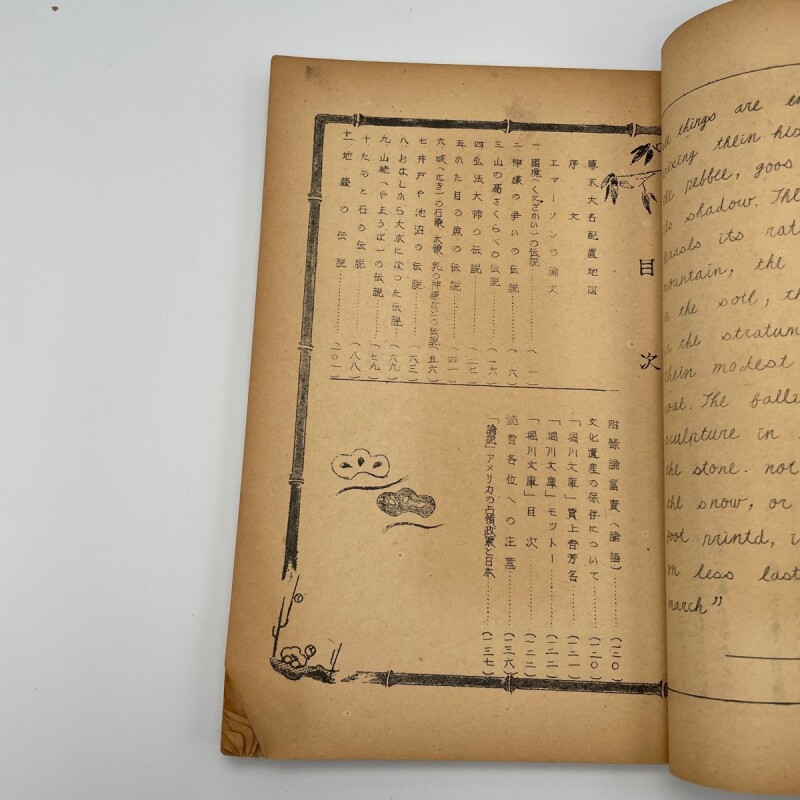 things are
their his
pebble, goos
shadow. The
its rat
mountain, the
the soil, th
the stratum
their modest
coal. The falli
sculpture in
the stone. not
the snow, or
foot printd,
less last
march”
目次
幕末大名配置地図
序文
エマーソンの論文
一、国境(くにざかい)の伝説………(一)
二神様の争いの伝説………(六)
三山の高さくらべの伝説………(一六)
四弘法大師の伝説………(二七)
五かた目の魚の伝説………(四一)
六咳(せき)の石像、木像、乳の神様などの伝説(五六)
七井戸や池沼の伝説………(六三)
八おはしから大木になった伝説………(六九)
九山姥(やまうば)の伝説………(七九)
十 石の伝説………(八八)
十一地蔵の伝説………(一〇一)
附録論富貴(論語)………(一二〇)
文化遺産の保存について………(一二〇)
「堀川文庫」買上者芳名………(一二一)
「堀川文庫」モットー………(一二二)
「堀川文庫」目次………(一二二)
読者各位への注意………(一三六)
「論説」アメリカの占領政策と日本………(一三七)